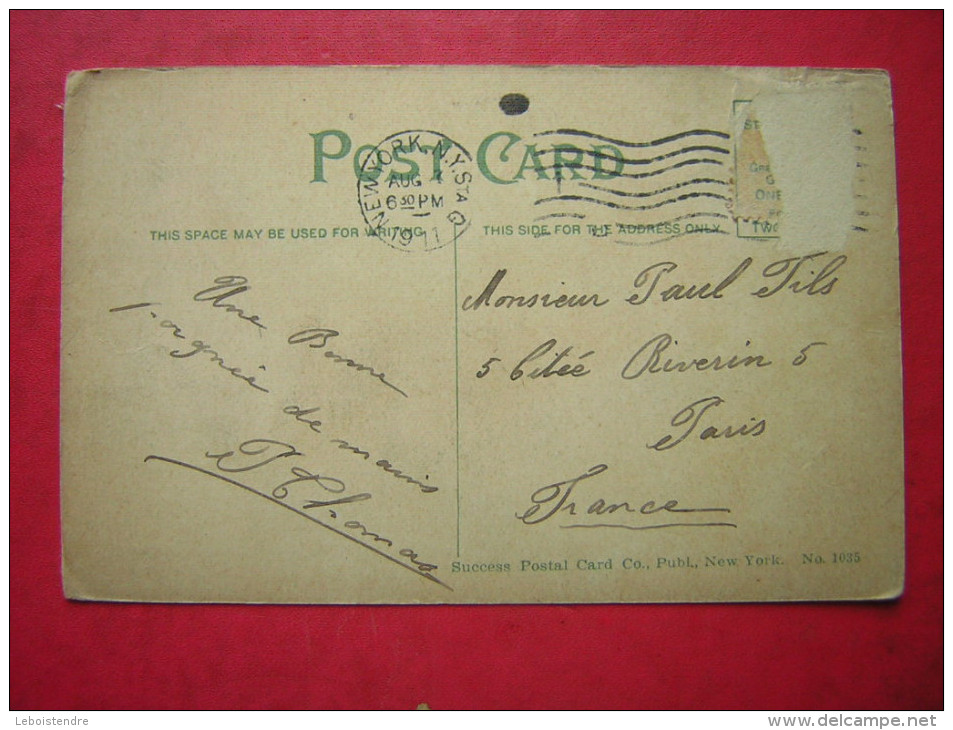 POST CARD
NEW YORK, N.Y. STA G
AUG
6 30 PM
1911
THIS SPACE MAY BE USED FOR WRITING
THIS SIDE FOR THE ADDRESS ONLY
ONE
TWO
Une Bonne
Pognée de mains
P Thomas
Monsieur Paul Fils
5 Citée Riverin 5
Paris
France
Success Postal Card Co., Publ., New York. No. 1035
Leboistendre
www.delcampe.net